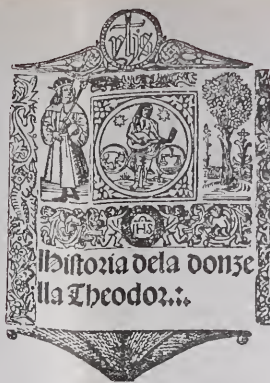 yhs
IHS
Historia dela donze
lla Theodor.:.